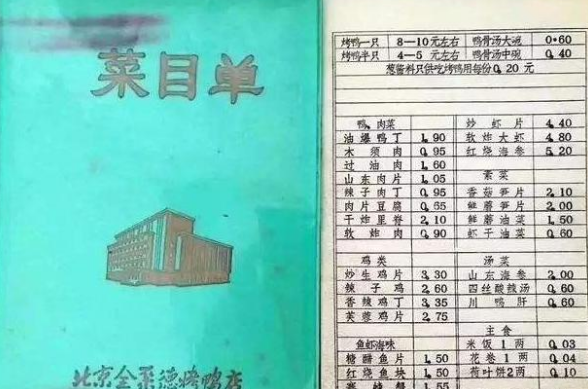 菜目单
北京全聚德烤鸭店
烤鸭一只 8—10元左右 鸭骨汤大碗 0.60
烤鸭半只 4—5元左右 鸭骨汤中碗 0.40
葱酱料只供吃烤鸭用每份0.20元
鸭、肉菜 炒虾片 4.40
油爆鸭丁 1.90 软炸大虾 4.80
木须肉 0.95 红烧海参 5.20
过油肉 1.60
山东肉片 1.05 素菜
辣子肉丁 0.95 香菇笋片 2.10
肉片豆腐 0.65 鲜蘑笋片 2.00
干炸里脊 2.10 鲜蘑油菜 1.50
软炸肉 0.90 虾子油菜 0.60
鸡类 汤菜
炒生鸡片 3.30 山东海参 2.00
辣子鸡 2.60 四丝酸辣汤 0.60
香辣鸡丁 3.35 川鸭肝 0.60
芙蓉鸡片 2.75
主食
鱼虾海味 米饭1两 0.03
糖醋鱼片 1.50 花卷1两 0.04
红烧鱼块 1.50 荷叶饼2两 0.10
1.55